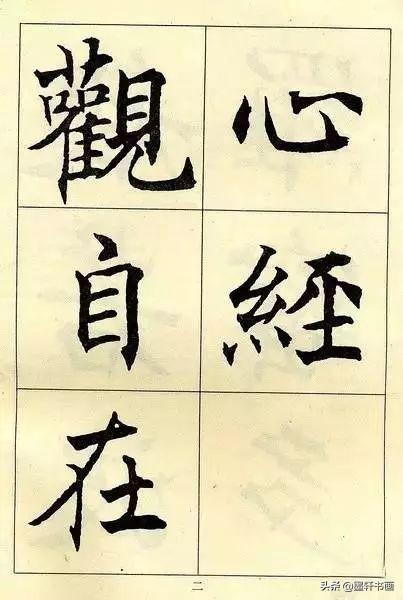 心經
觀自在
二
头条@墨轩书画